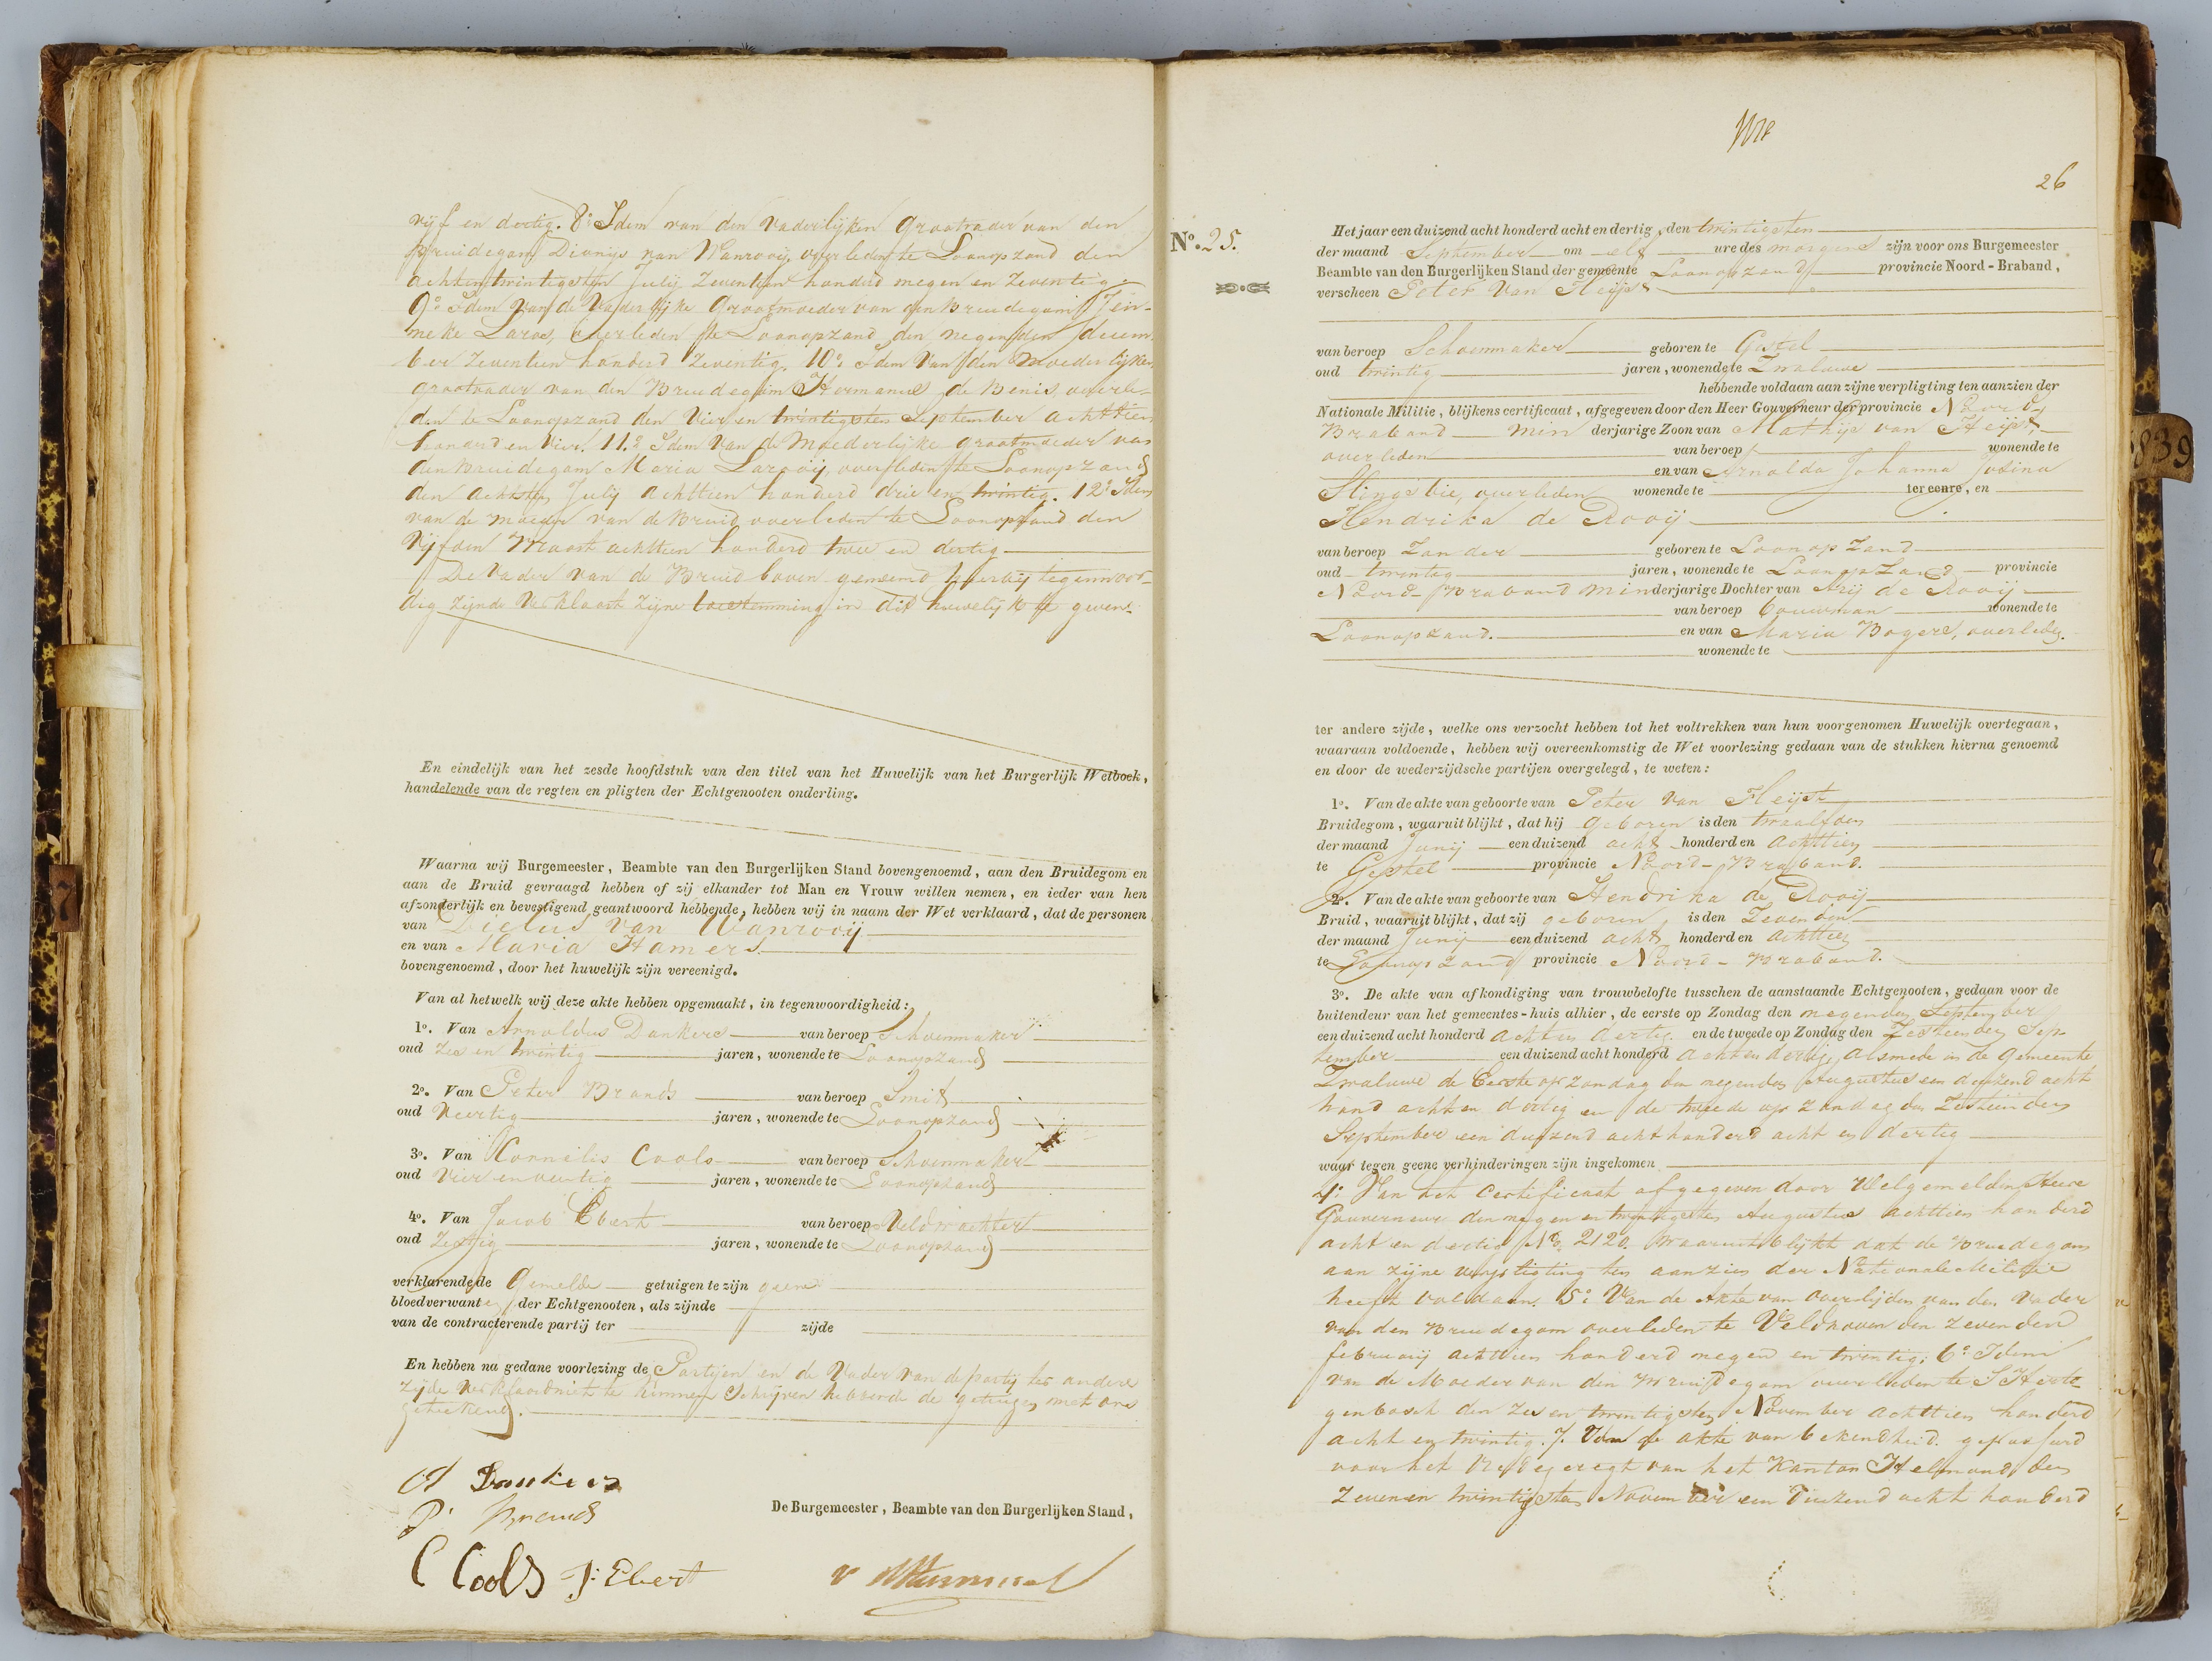 vijf en dertig. 8o. Idem van den Vaderlijken Grootvader van den
Bruidegom Dionijs van Wanrooij, overleden te Loonopzand den
achtentwintigsten Julij Zeventien honderd negen en Zeventig.
9o. Idem van de Vaderlijke Grootmoeder van den Bruidegom Jen-
neke Laros, overleden te Loonopzand den negenden decem-
ber Zeventien honderd Zeventig. 10o. Idem van den Moederlijken
grootvader van den Bruidegom Hermanus de Benis, overle-
den te Loonopzand den Vier en twintigsten September achttien
honderd en Vier. 11o. Idem Van de Moederlijke grootmoeder van
den Bruidegom Maria Larooij, overleden te Loonopzand
den achtsten Julij achttien honderd drie en twintig. 12o. Idem
van de moeder van de Bruid overleden te Loonopzand den
Vijfden Maart achttien honderd twee en dertig
De Vader van de Bruid boven genoemd hierbij tegenwoor-
dig zijnde Verklaart zijne toestemming in dit huwelijk te geven.
En eindelijk van het zesde hoofdstuk van den titel van het Huwelijk van het Burgerlijk Wetboek,
handelende van de regten en pligten der Echtgenooten onderling.
Waarna wij Burgemeester, Beambte van den Burgerlijken Stand bovengenoemd, aan den Bruidegom en
aan de Bruid gevraagd hebben of zij elkander tot Man en Vrouw willen nemen, en ieder van hen
afzonderlijk en bevestigend geantwoord hebbende, hebben wij in naam der Wet verklaard, dat de personen
van Dielus van Wanrooij
en van Maria Hamers
bovengenoemd, door het huwelijk zijn vereenigd.
Van al hetwelk wij deze akte hebben opgemaakt, in tegenwoordigheid:
1o. Van Arnoldus Dankers van beroep Schoenmaker
oud Zes en twintig jaren, wonende te Loonopzand
2o. Van Peter Brands van beroep Smit
oud Veertig jaren, wonende te Loonopzand
3o. Van Kornelis Cools van beroep Schoenmaker
oud Vier en veertig jaren, wonende te Loonopzand
4o. Van Jacob Ebert van beroep Veldwachter
oud Zestig jaren, wonende te Loonopzand
verklarende de Gemelde getuigen te zijn geene
bloedverwanten der Echtgenooten, als zijnde
van de contracterende partij ter zijde
En hebben na gedane voorlezing de Partijen en de Vader van de partij ter andere
Zijde Verklaard niet te kunnen Schrijven hebbende de getuigen met ons
geteekend.
A Dankers
P. Brands
De Burgemeester, Beambte van den Burgerlijken Stand,
C Cools J: Ebert
26
No. 25.
Het jaar een duizend acht honderd acht en dertig, den twintigsten
der maand September om elf ure des morgens zijn voor ons Burgemeester
Beambte van den Burgerlijken Stand der gemeente Loonopzand provincie Noord-Braband,
verscheen Peter Van Heijst
van beroep Schoenmaker geboren te Gestel
oud twintig jaren, wonende te Zwaluwe
hebbende voldaan aan zijne verpligting ten aanzien der
Nationale Militie, blijkens certificaat, afgegeven door den Heer Gouverneur der provincie Noord-
Braband Min derjarige Zoon van Mathijs van Heijst,
overleden van beroep wonende te
en van Arnolda Johanna Josina
Slingsbie, overleden wonende te ter eenre, en
Hendrika de Rooij
van beroep Zonder geboren te Loonopzand
oud twintig jaren, wonende te Loonopzand provincie
Noord-Braband Minderjarige Dochter van Arij de Rooij
van beroep bouwman wonende te
Loonopzand. en van Maria Bogers, overleden.
wonende te
ter andere zijde, welke ons verzocht hebben tot het voltrekken van hun voorgenomen Huwelijk overtegaan,
waaraan voldoende, hebben wij overeenkomstig de Wet voorlezing gedaan van de stukken hierna genoemd
en door de wederzijdsche partijen overgelegd, te weten:
1o. Van de akte van geboorte van Peter Van Heijst
Bruidegom, waaruit blijkt, dat hij geboren is den twaalfden
der maand Junij een duizend acht honderd en achttien
te Gestel provincie Noord-Braband.
2o. Van de akte van geboorte van Hendrika de Rooij
Bruid, waaruit blijkt, dat zij geboren is den Zevenden
der maand Junij een duizend acht honderd en achttien
te Loonopzand provincie Noord-Braband.
3o. De akte van afkondiging van trouwbelofte tusschen de aanstaande Echtgenooten, gedaan voor de
buitendeur van het gemeentes-huis alhier, de eerste op Zondag den negenden September
een duizend acht honderd acht en dertig en de tweede op Zondag den Zestienden Sep-
tember een duizend acht honderd acht en dertig, alsmede in de Gemeente
Zwaluwe de Eerste op zondag den negenden Augustus een duizend acht
hond acht en dertig en de tweede op zondag den Zestienden
September een duizend acht honderd acht en dertig
waar tegen geene verhinderingen zijn ingekomen
4o. Van het Certificaat afgegeven door Welgemelden Heere
Gouverneur den negen en twintigsten Augustus achttien honderd
acht en dertig No. 2120. Waaruit blijkt dat de Bruidegom
aan zijne verpligting ten aanzien der Nationale Militie
heeft Voldaan. 5o. Van de Akte van Overlijden van den Vader
van den Bruidegom overleden te Veldhoven den Zevenden
februarij achttien honderd negen en twintig. 6o. Idem
van de Moeder van den Bruidegom overleden te S Herto-
genbosch den Zes en twintigsten November achttien honderd
acht en twintig. 7. Van de akte van bekendheid. gepasseerd
voor het Vredegeregt van het Kanton Helmond, den
Zeven en twintigsten November een Duizend acht honderd
839